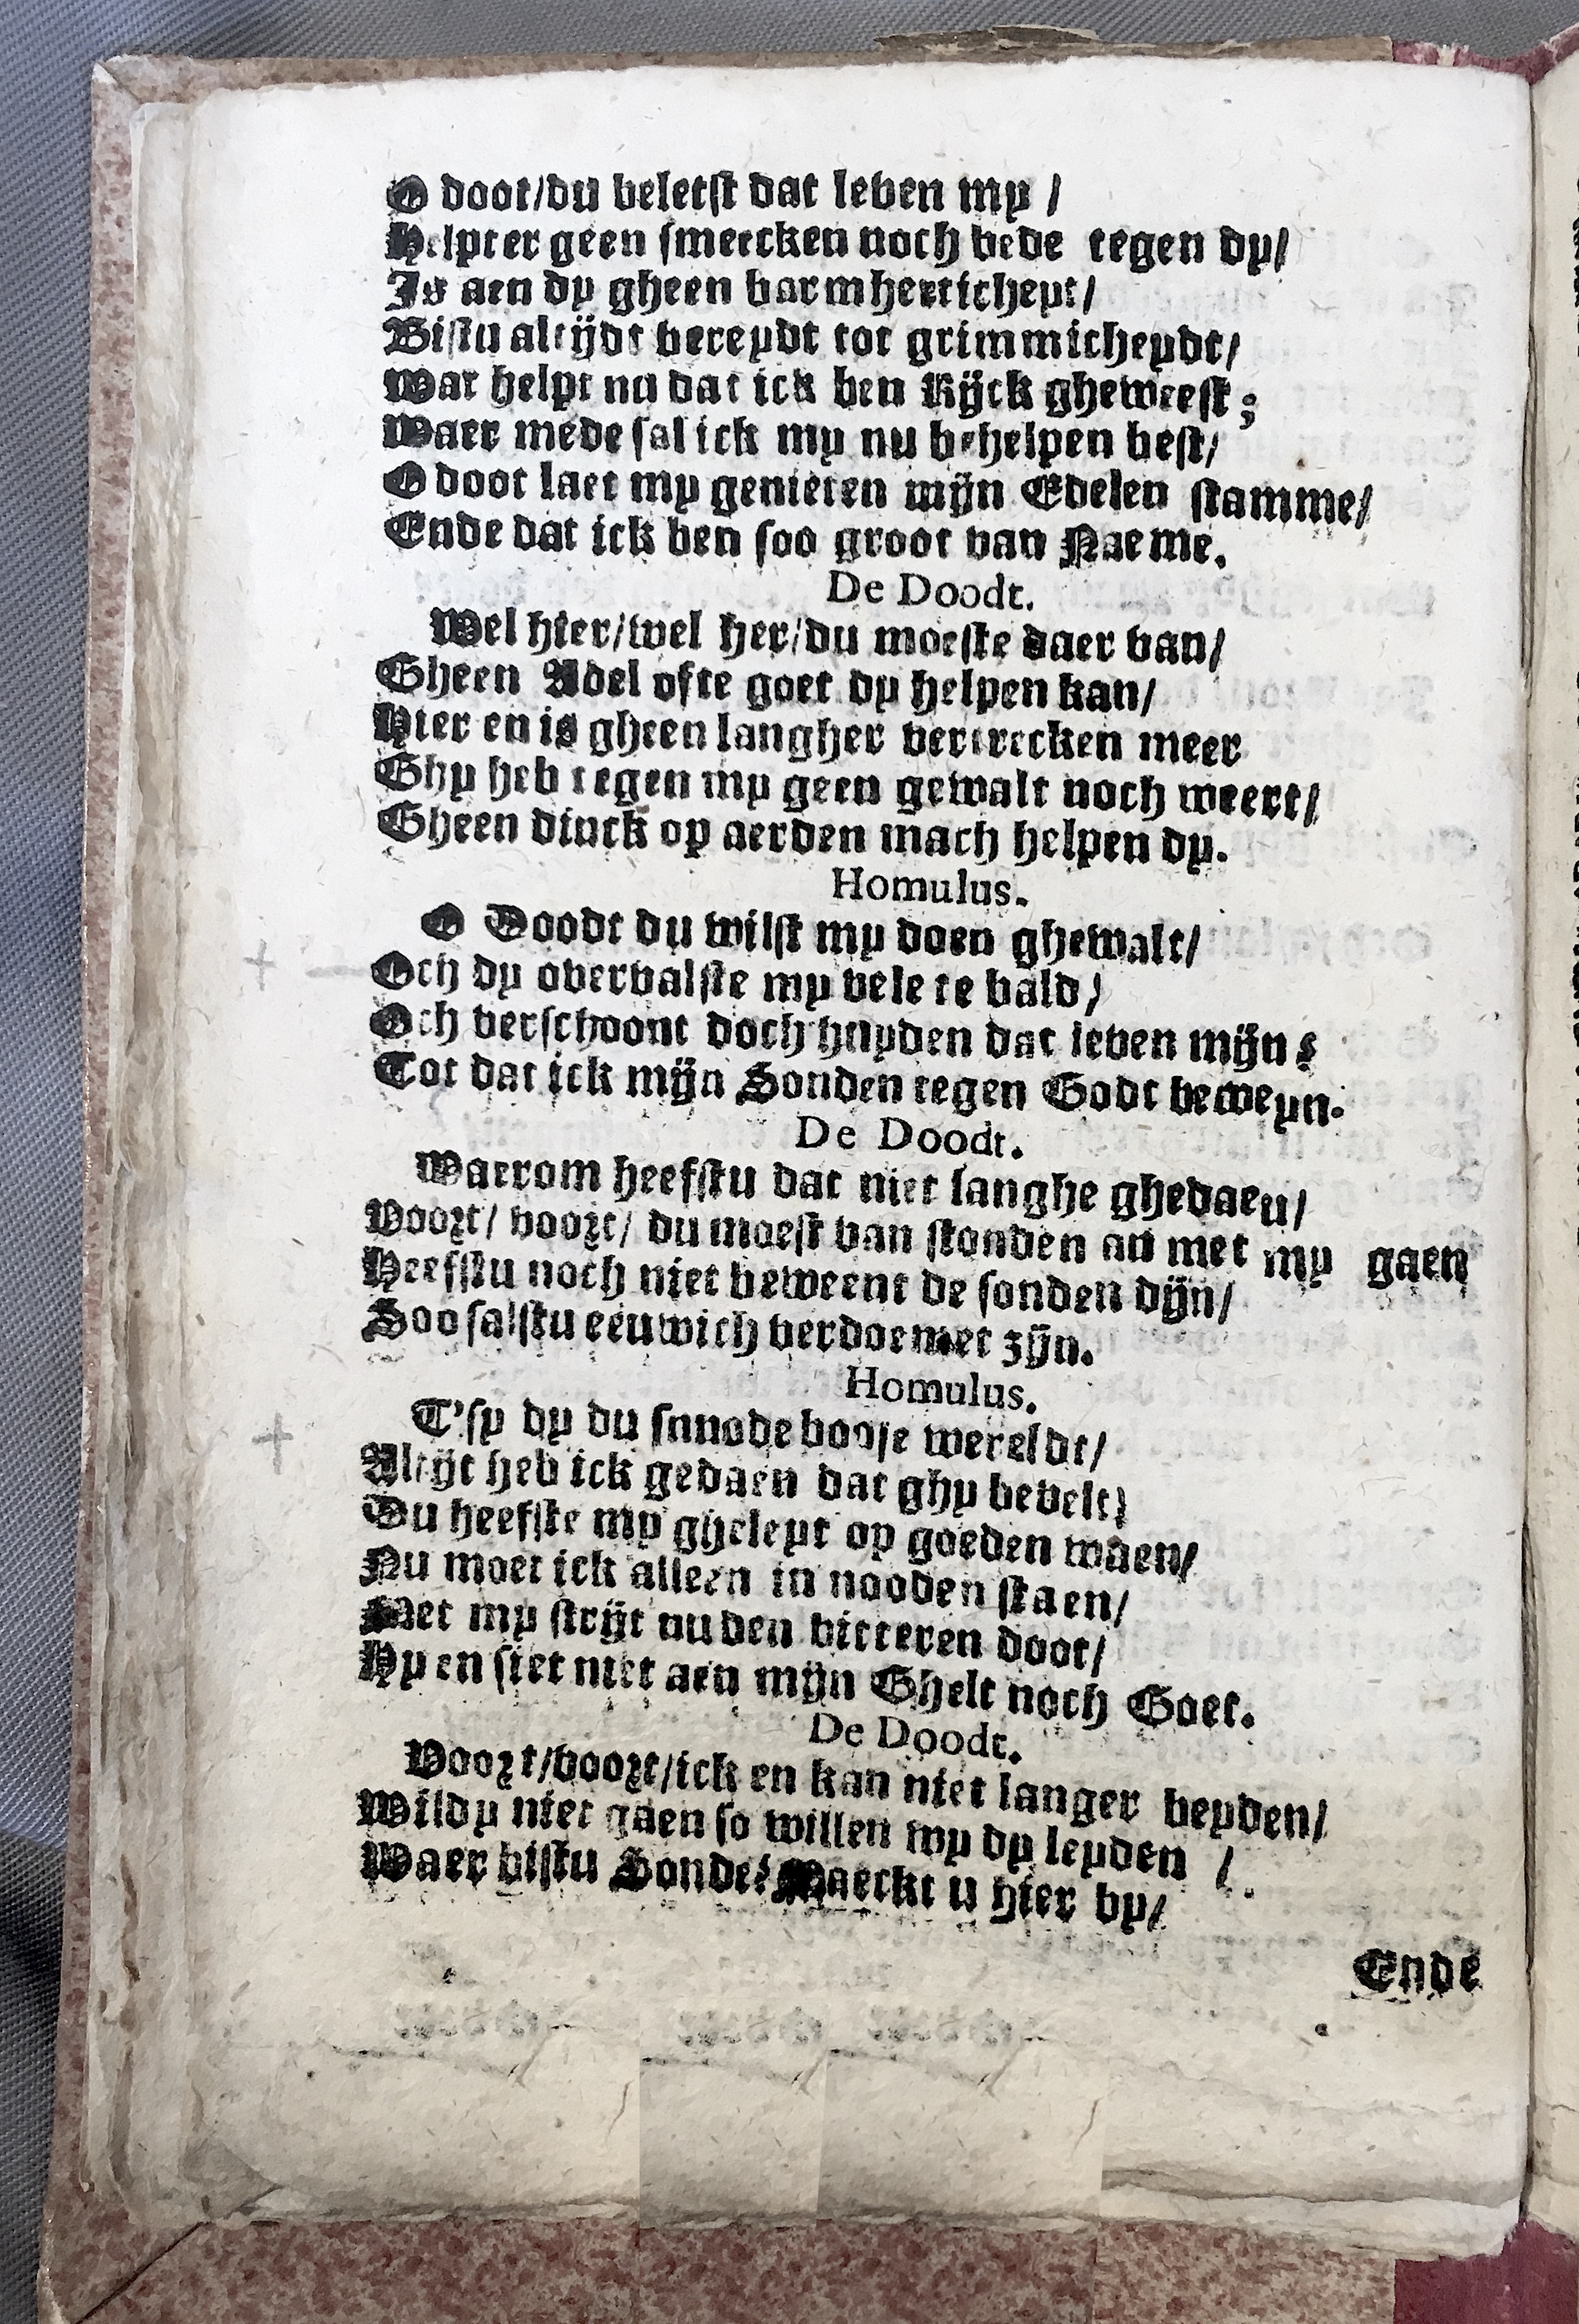 O doot/du beletst dat leven my /
Helpt er geen smeecken noch bede tegen dy/
Is aen dy gheen barmherticheyt/
Bistu altijdt bereydt tot grimmicheydt/
Wat helpt nu dat ick ben Rijck gheweest;
Waer mede sal ick my nu behelpen best/
O doot laet my genieten mijn Edelen stamme/
Ende dat ick ben soo groot van Naeme.
De Doodt.
Wel hier/wel her/du moeste daer van/
Gheen Adel ofte goet dy helpen kan/
Hier en is gheen langher vertrecken meer
Ghy heb tegen my geen gewalt noch weert/
Gheen dinck op aerden mach helpen dy.
Homulus.
O Doodt du wilst my doen ghewalt/
Och dy overvalste my vele te bald/
Och verschoont doch huyden dat leven mijn:
Tot dat ick mijn Sonden tegen Godt beweyn.
De Doodt.
Waerom heefstu dat niet langhe ghedaen/
Voort/ voort/ du moest van stonden an met my gaen
Heefstu noch niet beweent de sonden dijn/
Soo salstu eeuwich verdoemet zijn.
Homulus.
T'sy dy du snnode boose wereldt/
Altijt heb ick gedaen dat ghy bevelt/
Du heefste my gheleyt op goeden waen/
Nu moet ick alleen in nooden staen/
Met my strijt nu den bitteren doot/
Hy en siet niet aen mijn Ghelt noch Goet.
De Doodt.
Voort/voort/ick en kan niet langer beyden/
Wildy niet gaen so willen wy dy leyden /
Waer bistu Sonde? Maeckt u hier by/
Ende